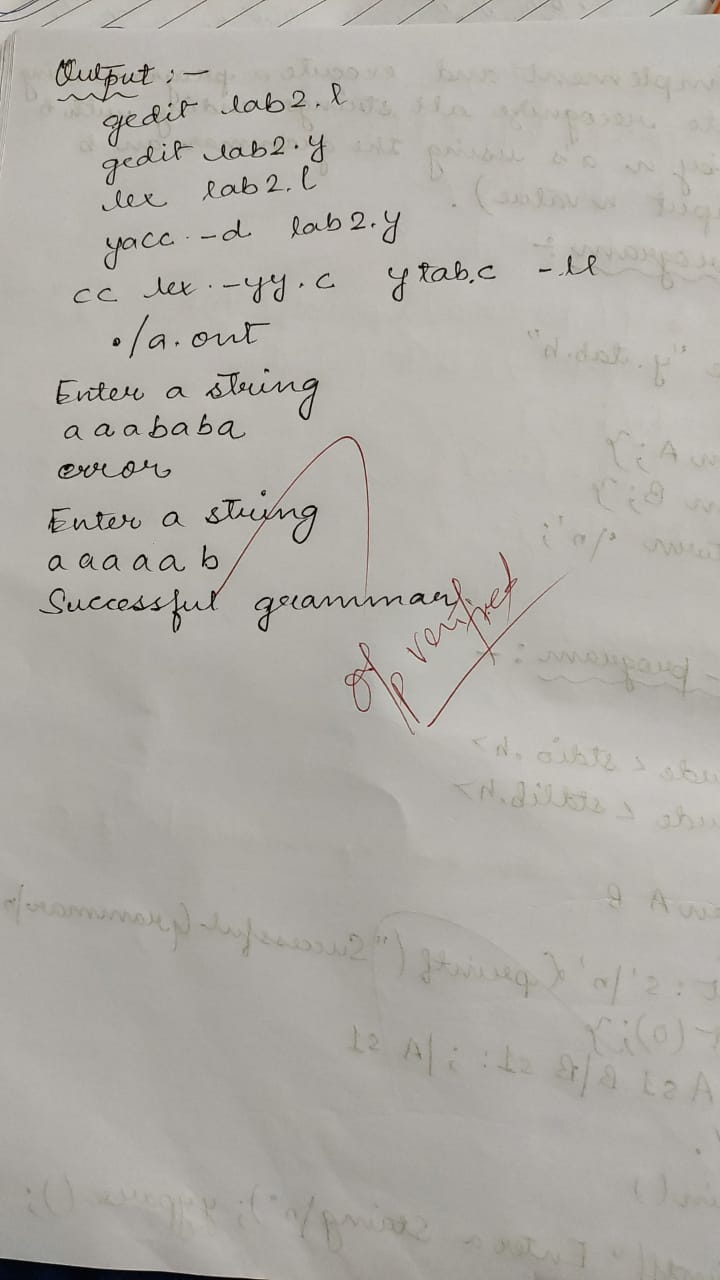 Output :-
gedit lab2.l
gedit lab2.y
lex lab2.l
yacc -d lab2.y
cc lex.-yy.c ytab.c -ll
./a.out
Enter a string
aaababa
error
Enter a string
aaaaab
Successful grammar
o/p verified